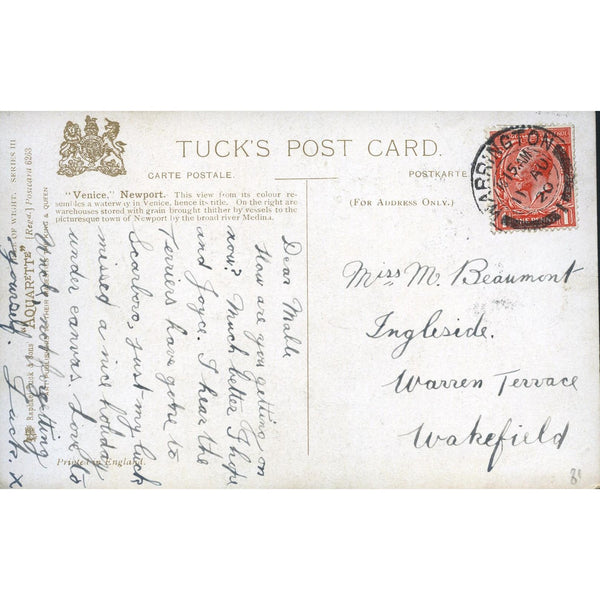 TUCK'S POST CARD.
CARTE POSTALE.
POSTKARTE
(FOR ADDRESS ONLY.)
"Venice," Newport. This view from its colour re-
sembles a waterway in Venice, hence its title. On the right are
warehouses stored with grain brought thither by vessels to the
picturesque town of Newport by the broad river Medina.
WARRINGTON
AU
20
Miss M. Beaumont
Ingleside.
Warren Terrace
Wakefield
Dear Mable
How are you getting on
now? Much better I hope
and Joyce. I hear the
Terriers have gone to
Scarboro, just my luck
missed a nice holiday
under canvas. Love to
yourself. Jack. x
SERIES III
"AQUARETTE"
(Regd.) Postcard 6263
Raphael Tuck & Sons
KING & QUEEN
Printed in England.
81